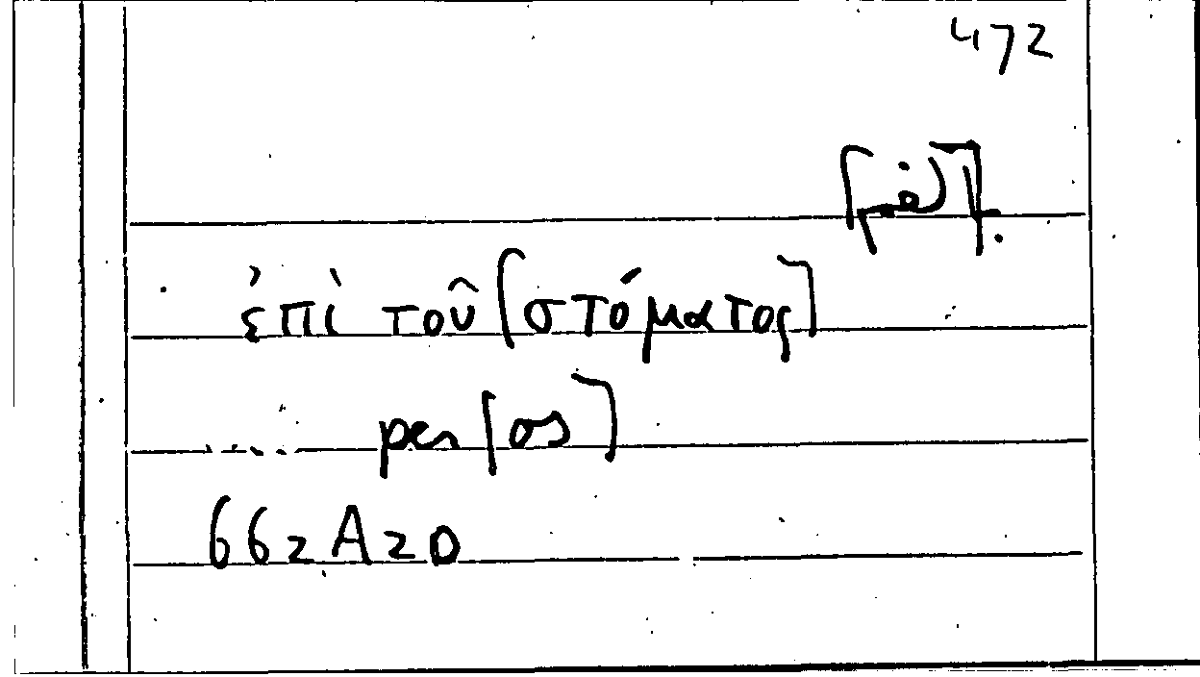 472
ἐπὶ τοῦ [στόματος]
per [os]
662 A 20